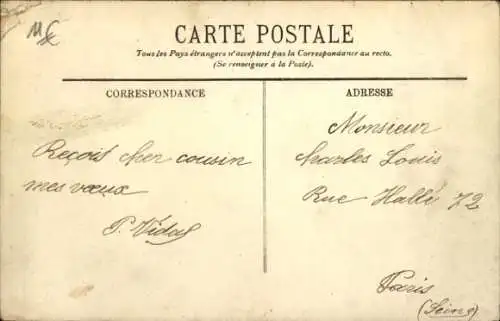 CARTE POSTALE
Tous les Pays étrangers n'acceptent pas la Correspondance au recto.
(Se renseigner à la Poste).
CORRESPONDANCE
Reçois cher cousin
mes vœux
P. Vidal
ADRESSE
Monsieur
Charles Louis
Rue Hallé 72
Paris
(Seine)